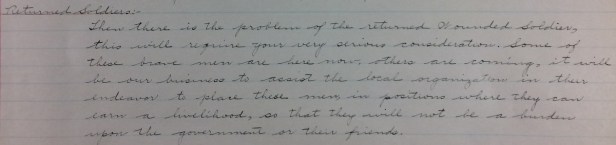 Returned Soldiers:-
Then there is the problem of the returned Wounded Soldier,
this will require your very serious consideration. Some of
these brave men are here now, others are coming, it will
be our business to assist the local organization in their
endeavor to place these men in positions where they can
earn a livelihood, so that they will not be a burden
upon the government or their friends.